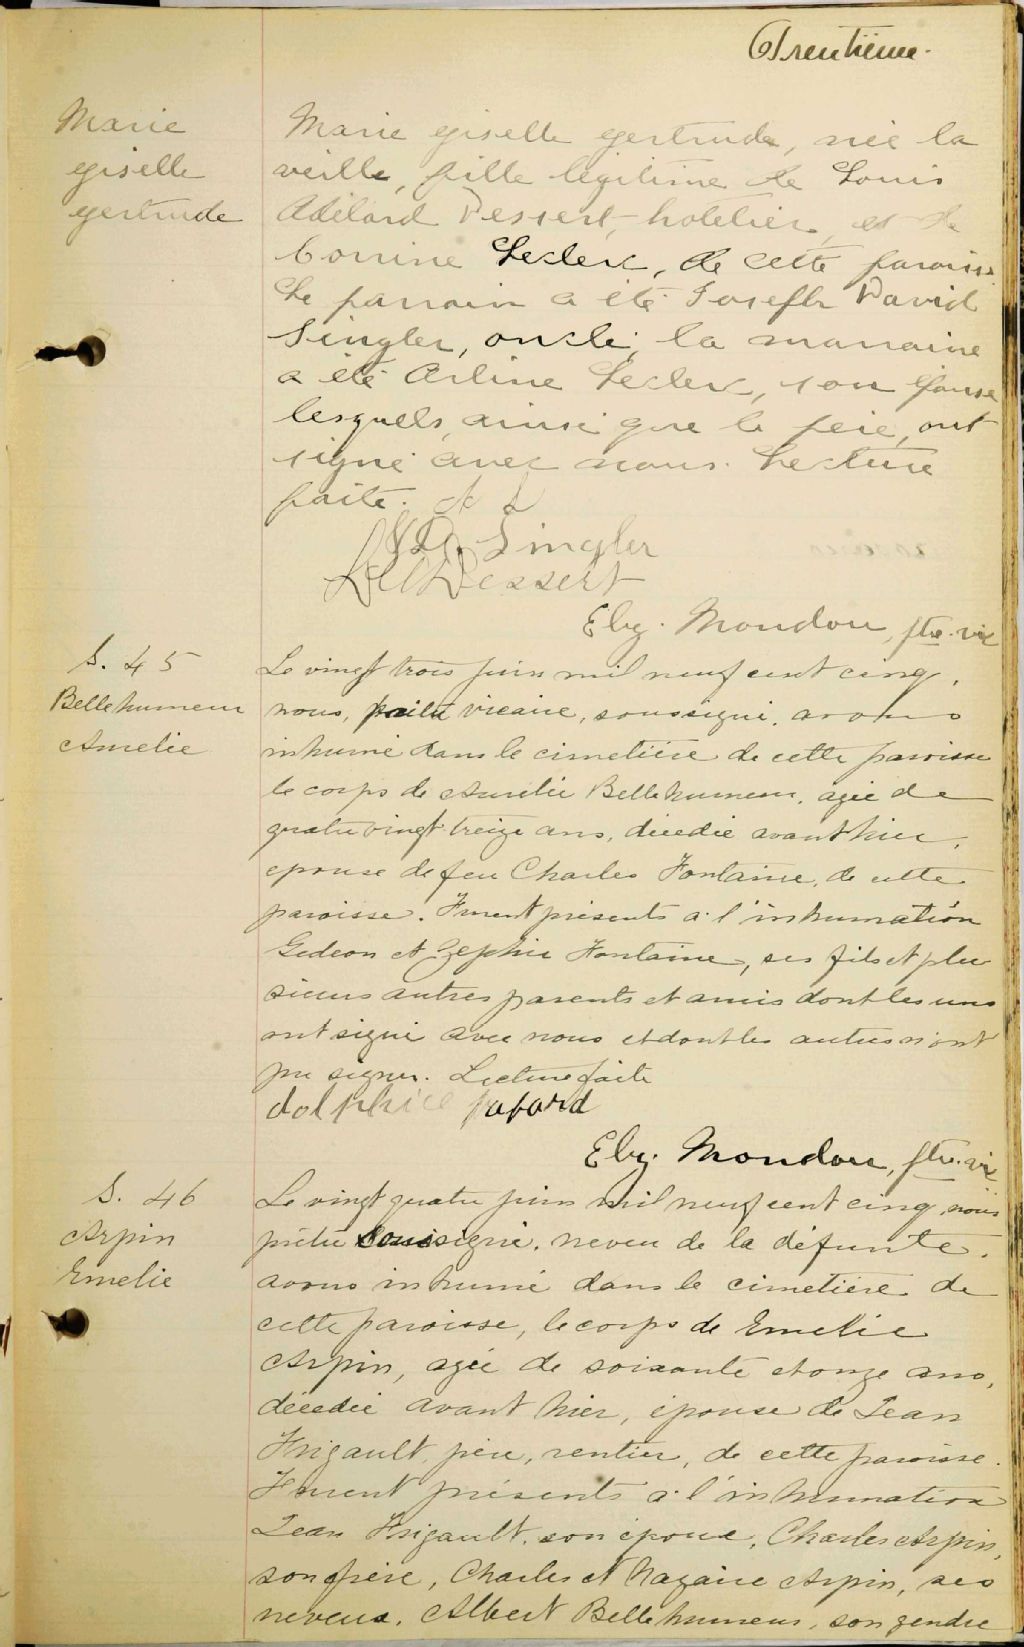 Trentième.
Marie
giselle
gertrude
Marie giselle gertrude, née la
veille, fille légitime de Louis
Adélard Dessert, hotelier, et de
Corrine Leclerc, de cette paroisse
Le parrain a été Joseph David
Singler, oncle, la marraine
a été Arline Leclerc, son épouse
lesquels, ainsi que le père, ont
signé avec nous. Lecture
faite. A L
J.D. Singler
L A Dessert
Elz. Mondou, ptre. vic
S. 45
Bellehumeur
Amelie
Le vingt trois juin mil neuf cent cinq,
nous, prêtre vicaire, soussigné, avons
inhumé dans le cimetière de cette paroisse
le corps de Amélie Bellehumeur, agée de
quatre vingt treize ans, décédée avant hier,
épouse de feu Charles Fontaine, de cette
paroisse. Furent présents à l'inhumation
Gedeon et Zephir Fontaine, ses fils et plu
sieurs autres parents et amis dont les uns
ont signé avec nous et dont les autres n'ont
pu signer. Lecture faite
dolphice pafard
Elz. Mondou, ptre. vic
S. 46
Arpin
Emelie
Le vingt quatre juin mil neuf cent cinq, nous
prêtre soussigné, neveu de la défunte,
avons inhumé dans le cimetière de
cette paroisse, le corps de Emelie
Arpin, agée de soixante et onze ans,
décédée avant hier, épouse de Jean
Frigault, père, rentier, de cette paroisse.
Furent présents à l'inhumation
Jean Frigault, son époux, Charles Arpin,
son frère, Charles et Nazaire Arpin, ses
neveux, Albert Bellehumeur, son gendre